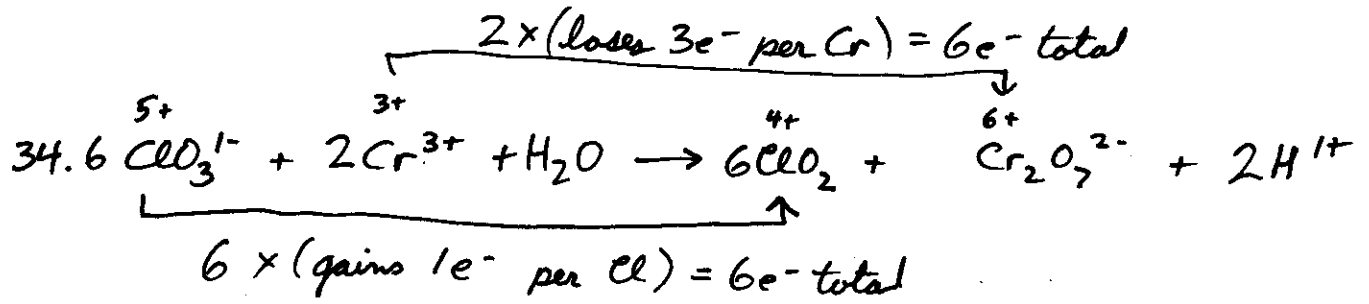 2 × (loses 3e⁻ per Cr) = 6e⁻ total
5+ 3+ 4+ 6+
34. 6 ClO₃¹⁻ + 2Cr³⁺ + H₂O ⟶ 6ClO₂ + Cr₂O₇²⁻ + 2H¹⁺
6 × (gains 1e⁻ per Cl) = 6e⁻ total